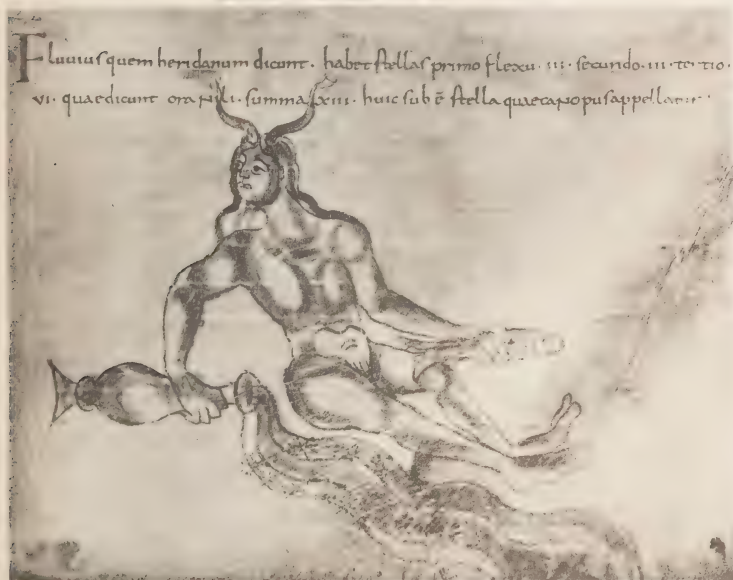 Fluuius quem heridanum dicunt · habet stellas primo flexu · iii · secundo · iii · tertio ·
vi · quae dicunt ora Nili · summa · xiii · huic sub ē stella quae canopus appellatur ·